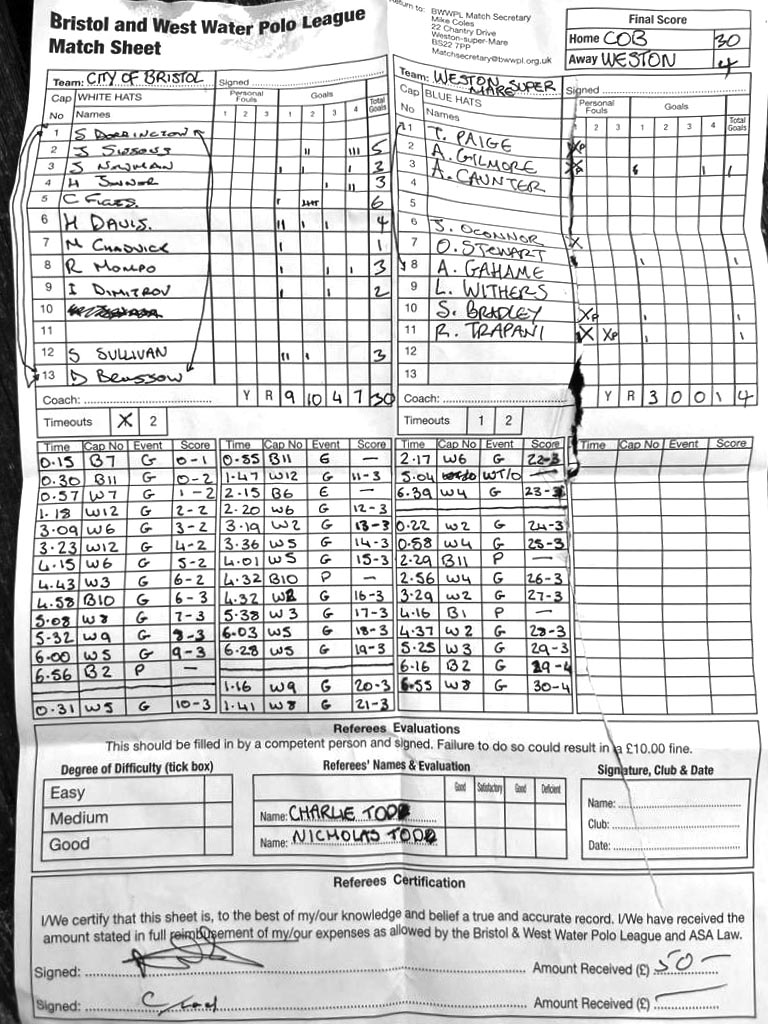 Bristol and West Water Polo League
Match Sheet
Return to: BWWPL Match Secretary
Mike Coles
22 Chantry Drive
Weston-super-Mare
BS22 7PP
Matchsecretary@bwwpl.org.uk
Final Score
Home COB 30
Away WESTON 4
Team: CITY OF BRISTOL Signed
Cap No WHITE HATS Names Personal Fouls 1 2 3 Goals 1 2 3 4 Total Goals
1 S DORRINGTON
2 J SISSONS II III 5
3 S NEWMAN I I 2
4 H JUNNOR I II 3
5 C I 6
6 H DAVIS. II I I 4
7 M CHADWICK I 1
8 R MOMPO I I I 3
9 I DIMITROV I I 2
10
11
12 S SULLIVAN II I 3
13 D BRUSSOW
Coach: Y R 9 10 4 7 30
Timeouts X 2
Team: WESTON SUPER MARE Signed
Cap No BLUE HATS Names Personal Fouls 1 2 3 Goals 1 2 3 4 Total Goals
1 T. PAIGE
2 A. GILMORE
3 A. CAUNTER
4
5
6 J. OCONNOR
7 O. STEWART
8 A. GAHAME
9 L. WITHERS
10 S. BRADLEY
11 R. TRAPANI
12
13
Coach: Y R 3 0 0 1 4
Timeouts 1 2
Time Cap No Event Score
0.15 B7 G 0-1
0.30 B11 G 0-2
0.57 W7 G 1-2
1.18 W12 G 2-2
3.09 W6 G 3-2
3.23 W12 G 4-2
4.15 W6 G 5-2
4.43 W3 G 6-2
4.58 B10 G 6-3
5.08 W8 G 7-3
5.32 W9 G 8-3
6.00 W5 G 9-3
6.56 B2 P —
0.31 W5 G 10-3
Time Cap No Event Score
0.55 B11 E —
1.47 W12 G 11-3
2.15 B6 E —
2.20 W6 G 12-3
3.19 W2 G 13-3
3.36 W5 G 14-3
4.01 W5 G 15-3
4.32 B10 P —
4.32 W2 G 16-3
5.38 W3 G 17-3
6.03 W5 G 18-3
6.28 W5 G 19-3
1.16 W9 G 20-3
1.41 W8 G 21-3
Time Cap No Event Score
2.17 W6 G 22-3
5.04 WT/O —
6.39 W4 G 23-3
0.22 W2 G 24-3
0.58 W4 G 25-3
2.29 B11 P —
2.56 W4 G 26-3
3.29 W2 G 27-3
4.16 B1 P —
4.37 W2 G 28-3
5.25 W3 G 29-3
6.16 B2 G 29-4
6.55 W8 G 30-4
Time Cap No Event Score
Referees Evaluations
This should be filled in by a competent person and signed. Failure to do so could result in a £10.00 fine.
Degree of Difficulty (tick box)
Easy
Medium
Good
Referees' Names & Evaluation
Good Satisfactory Good Deficient
Name: CHARLIE TODD
Name: NICHOLAS TODD
Signature, Club & Date
Name:
Club:
Date:
Referees Certification
I/We certify that this sheet is, to the best of my/our knowledge and belief a true and accurate record. I/We have received the
amount stated in full reimbursement of my/our expenses as allowed by the Bristol & West Water Polo League and ASA Law.
Signed: Amount Received (£) 50 -
Signed: Amount Received (£)